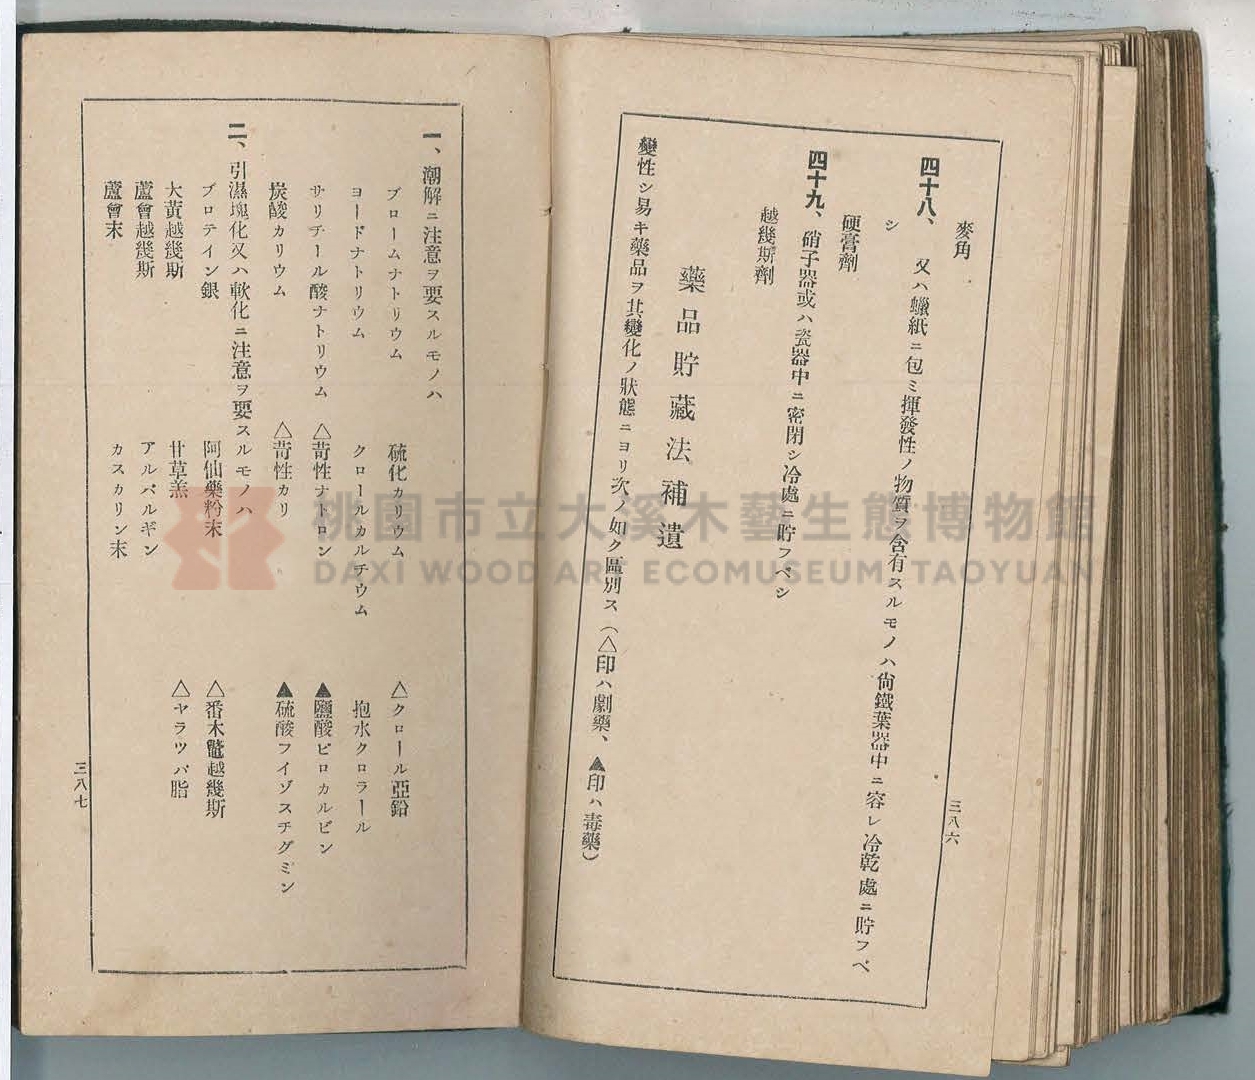 麥角
四十八、 又ハ蠟紙ニ包ミ揮發性ノ物質ヲ含有スルモノハ尙鐵葉器中ニ容レ冷乾處ニ貯フベ
シ
硬膏劑
四十九、硝子器或ハ瓷器中ニ密閉シ冷處ニ貯フベシ
越幾斯劑
藥品貯藏法補遺
變性シ易キ藥品ヲ其變化ノ狀態ニヨリ次ノ如ク區別ス(△印ハ劇藥、▲印ハ毒藥)
三八六
一、潮解ニ注意ヲ要スルモノハ
ブロームナトリウム 硫化カリウム △クロール亞鉛
ヨードナトリウム クロールカルチウム 抱水クロラール
サリチール酸ナトリウム △苛性ナトロン ▲鹽酸ピロカルピン
炭酸カリウム △苛性カリ ▲硫酸フイゾスチグミン
二、引濕塊化又ハ軟化ニ注意ヲ要スルモノハ
プロテイン銀 阿仙藥粉末 △番木鼈越幾斯
大黃越幾斯 甘草羔 △ヤラツパ脂
蘆會越幾斯 アルバルギン
蘆會末 カスカリン末
三八七
桃園市立大溪木藝生態博物館
DAXI WOOD ART ECOMUSEUM, TAOYUAN